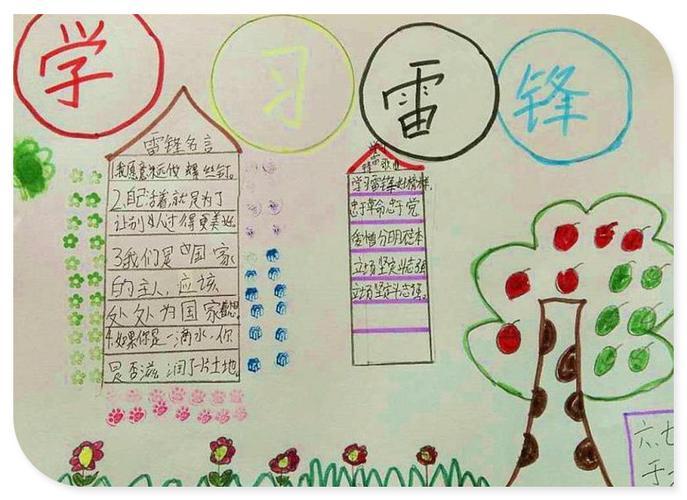 学习雷锋
雷锋名言
1我愿意永远做螺丝钉。
2.自己活着,就是为了
让别人过得更美好
3我们是国家
的主人,应该
处处为国家着想
4.如果你是一滴水,你
是否滋润了一片土地
学习雷锋好榜样,
忠于革命忠于党
爱憎分明不忘本
立场坚定斗志强
立场坚定斗志强。
六、七
于